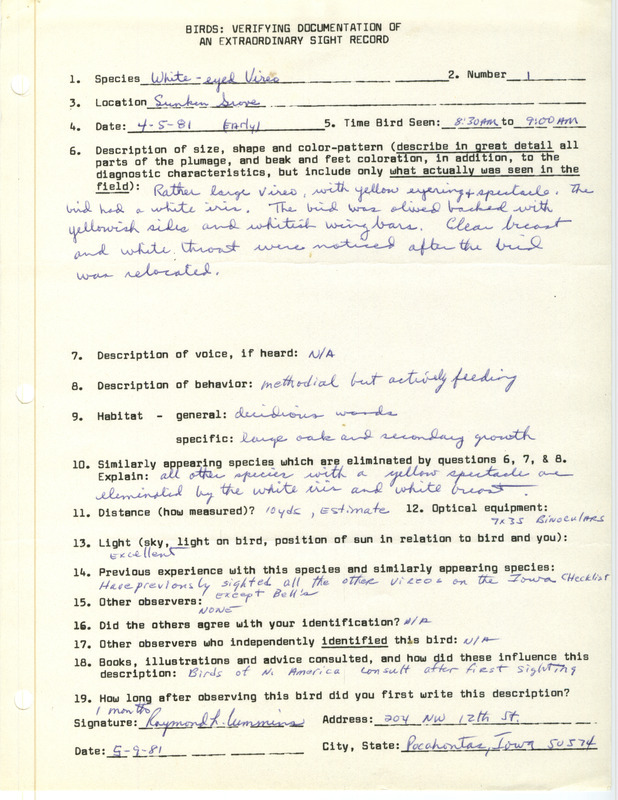 BIRDS: VERIFYING DOCUMENTATION OF
AN EXTRAORDINARY SIGHT RECORD
1. Species White-eyed Vireo 2. Number 1
3. Location Sunken Grove
4. Date: 4-5-81 Early! 5. Time Bird Seen: 8:30AM to 9:00AM
6. Description of size, shape and color-pattern (describe in great detail all
parts of the plumage, and beak and feet coloration, in addition, to the
diagnostic characteristics, but include only what actually was seen in the
field): Rather large vireo, with yellow eyering & spectacle. The
bird had a white iris. The bird was olived backed with
yellowish sides and whitish wing bars. Clear breast
and white throat were noticed after the bird
was relocated.
7. Description of voice, if heard: N/A
8. Description of behavior: methodial but actively feeding
9. Habitat - general: decidious woods
specific: large oak and secondary growth
10. Similarly appearing species which are eliminated by questions 6, 7, & 8.
Explain: all other species with a yellow spectacle are
eleminated by the white iris and white breast.
11. Distance (how measured)? 10yds, Estimate 12. Optical equipment:
7x35 Binoculars
13. Light (sky, light on bird, position of sun in relation to bird and you):
Excellent
14. Previous experience with this species and similarly appearing species:
Have previously sighted all the other vireos on the Iowa Checklist
except Bell's
15. Other observers:
NONE
16. Did the others agree with your identification? N/A
17. Other observers who independently identified this bird: N/A
18. Books, illustrations and advice consulted, and how did these influence this
description: Birds of N. America consult after first sighting
19. How long after observing this bird did you first write this description?
1 month
Signature: Raymond L. Cummins Address: 204 NW 12th St.
Date: 5-9-81 City, State: Pocahontas, Iowa 50574